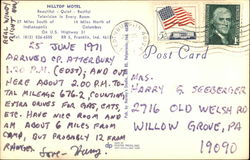 HILLTOP MOTEL
Beautiful - Quiet - Restful
Television in Every Room
27 Miles South of
Indianapolis
14 Miles North of
Columbus
On U.S. Highway 31
RR 2, Franklin, Ind.
25 JUNE 1971
ARRIVED CP. ATTERBURY
1:20 P.M. (EDST), AND OUT
HERE ABOUT 2:00 P.M. TO-
TAL MILEAGE 676.2, COUNTING
EXTRA DRIVES FOR GAS, EATS,
ETC. HAVE NICE ROOM AND
AM ABOUT 6 MILES FROM
CAMP, BUT PROBABLY 12 FROM
RANGES. Love - Harry
Post Card
MRS.
HARRY G. SEEBERGER
2716 OLD WELSH RD
WILLOW GROVE, PA
19090